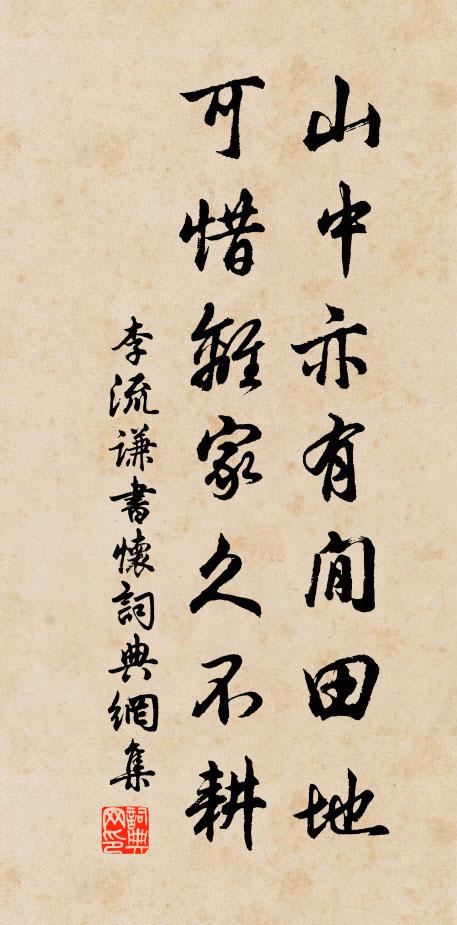 山中亦有閒田地
可惜離家久不耕
李流謙書懷詞典網集
詞典網印